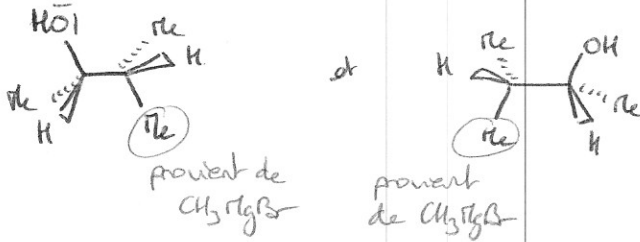 HO
Me
H
Me
H
Me
provient de
CH3MgBr
et
Me
H
OH
Me
Me
H
provient
de CH3MgBr